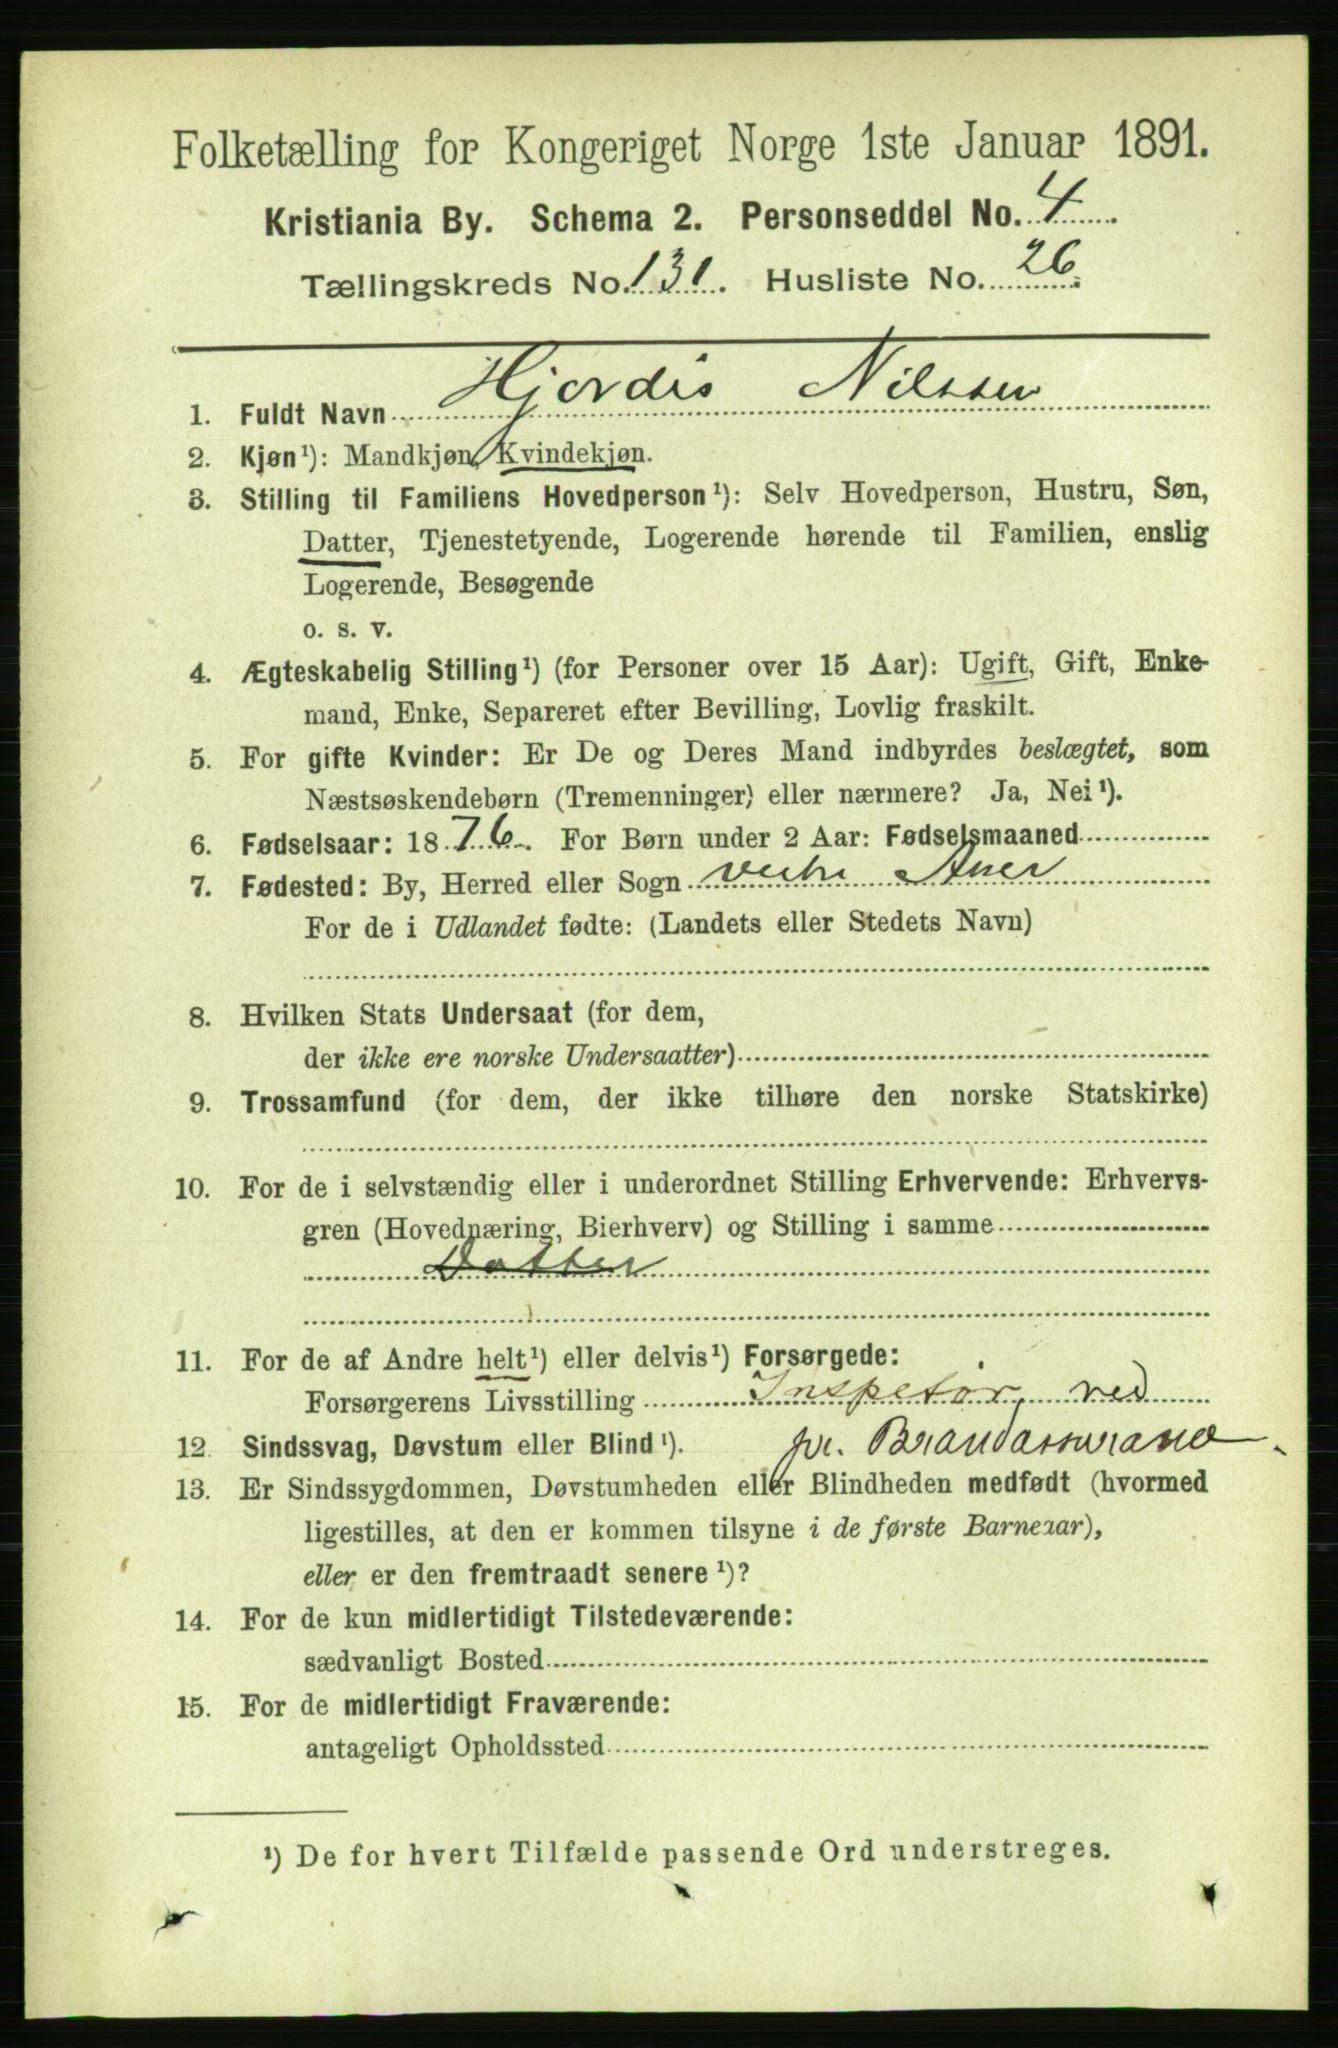 Folketælling for Kongeriget Norge 1ste Januar 1891.
Kristiania By. Schema 2. Personseddel No. 4.
Tællingskreds No. 131. Husliste No. 26.
1. Fuldt Navn Hjordis Nilssen
2. Kjøn¹): Mandkjøn, Kvindekjøn.
3. Stilling til Familiens Hovedperson¹): Selv Hovedperson, Hustru, Søn,
Datter, Tjenestetyende, Logerende hørende til Familien, enslig
Logerende, Besøgende
o. s. v.
4. Ægteskabelig Stilling¹) (for Personer over 15 Aar): Ugift, Gift, Enke-
mand, Enke, Separeret efter Bevilling, Lovlig fraskilt.
5. For gifte Kvinder: Er De og Deres Mand indbyrdes beslægtet, som
Næstsøskendebørn (Tremenninger) eller nærmere? Ja, Nei¹).
6. Fødselsaar: 1876. For Børn under 2 Aar: Fødselsmaaned
7. Fødested: By, Herred eller Sogn vestre Aker
For de i Udlandet fødte: (Landets eller Stedets Navn)
8. Hvilken Stats Undersaat (for dem,
der ikke ere norske Undersaatter)
9. Trossamfund (for dem, der ikke tilhøre den norske Statskirke)
10. For de i selvstændig eller i underordnet Stilling Erhvervende: Erhvervs-
gren (Hovednæring, Bierhverv) og Stilling i samme
Datter
11. For de af Andre helt¹) eller delvis¹) Forsørgede:
Forsørgerens Livsstilling Inspetør ved
12. Sindssvag, Døvstum eller Blind¹). pr. Brandassurance
13. Er Sindssygdommen, Døvstumheden eller Blindheden medfødt (hvormed
ligestilles, at den er kommen tilsyne i de første Barneaar),
eller er den fremtraadt senere¹)?
14. For de kun midlertidigt Tilstedeværende:
sædvanligt Bosted
15. For de midlertidigt Fraværende:
antageligt Opholdssted
¹) De for hvert Tilfælde passende Ord understreges.